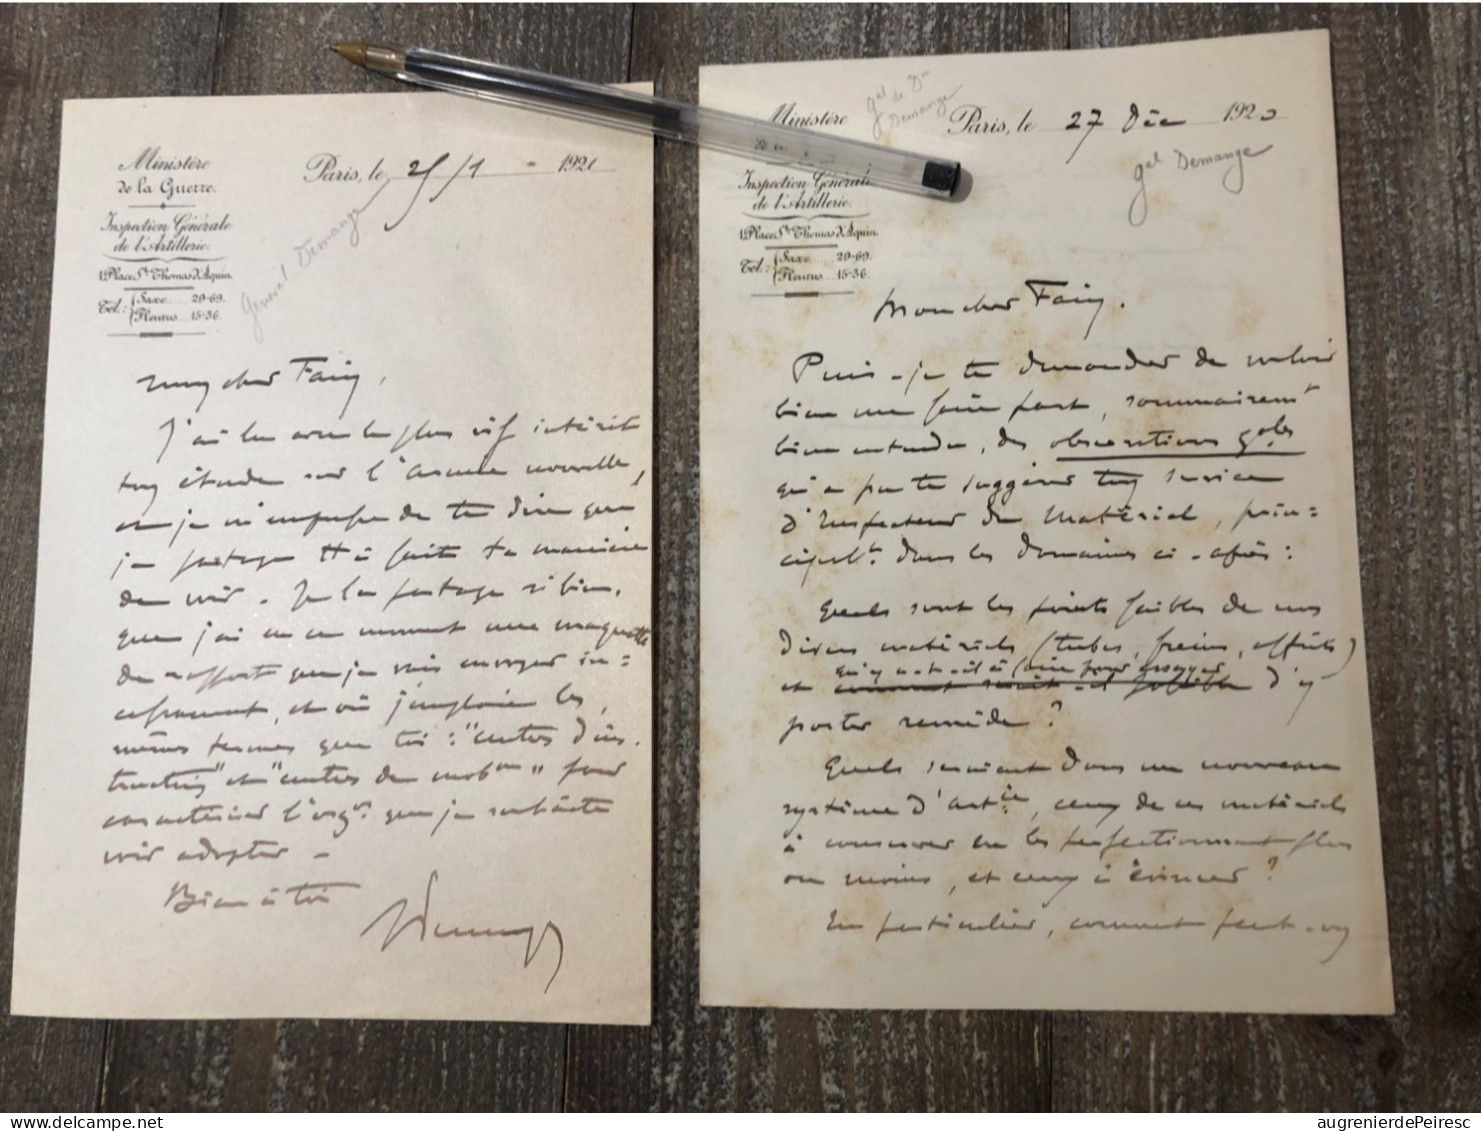 Ministère
de la Guerre.
Inspection Générale
de l'Artillerie.
1, Place St Thomas d'Aquin.
Tél.: Saxe.... 29-69.
Fleurus... 15-36.
Paris, le 25/1 - 1921
Général Demange
mon cher Fain,
J'ai lu avec le plus vif intérêt
ton étude sur l'armée nouvelle,
et je m'empresse de te dire que
je partage tt à fait ta manière
de voir - Je la partage si bien,
que j'ai en ce moment une maquette
de rapport que je vais envoyer
et où j'emploie les
mêmes termes que toi : "centres d'ins.
truction" et "centres de mobon" pour
caractériser l'orgon que je souhaite
voir adopter -
Bien à toi
Demange
Ministère
Inspection Générale
de l'Artillerie.
1, Place St Thomas d'Aquin.
Tél.: Saxe.... 29-69.
Fleurus.... 15-36.
gal de Don
Demange
Paris, le 27 Déc 1920
gal Demange
Mon cher Fain.
Puis-je te demander de vouloir
bien me faire part, sommairemt
bien entendu, des observations gales
qu'a pu te suggérer ton service
d'Inspecteur du Matériel, prin=
cipalt dans les domaines ci-après :
Quels sont les points faibles de nos
divers matériels (tubes, freins, affûts)
qu'y a-t-il à faire pour essayer
et comment serait-il possible d'y
porter remède ?
Quels seraient dans un nouveau
système d'artie, ceux de ces matériels
à conserver en les perfectionnant plus
ou moins, et ceux à évincer ?
En particulier, comment peut-on
augrenierdePeiresc